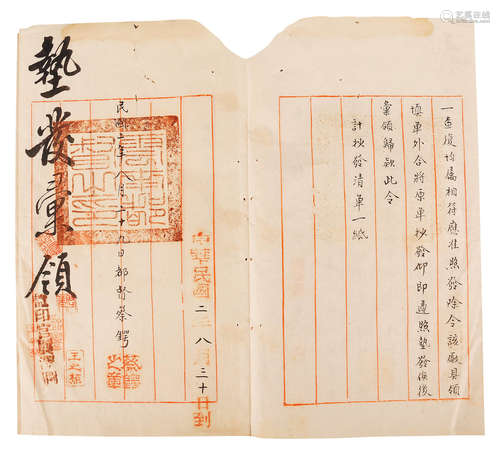 一查復均屬相符應准照發除令該廠具領
填單外合將原單抄發仰即遵照墊發俟後
彙領歸款此令
計抄發清單一紙
中華民國二年八月三十日到
民國二年八月二十九日都督蔡鍔
雲南都督之印
蔡鍔之章
墊發彙領